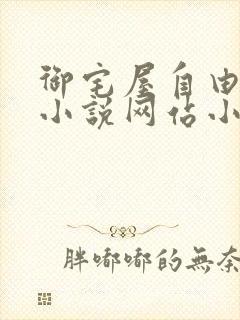 御宅屋自由
小说网佔小
胖嘟嘟的無奈